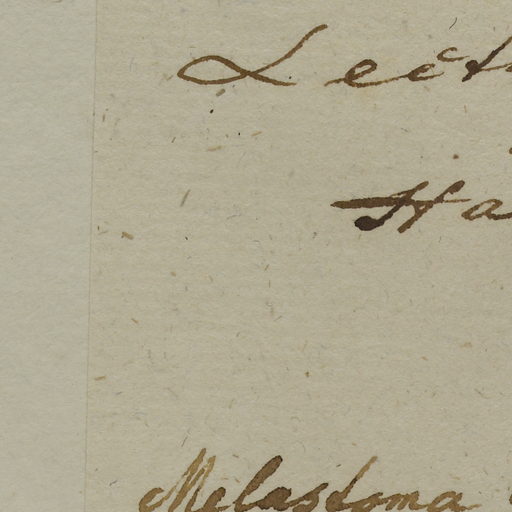 Lect
Ha
Melastoma